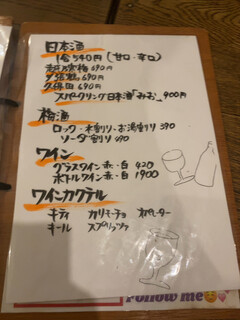 日本酒
1合540円(甘口・辛口)
越乃寒梅690円
夕張鶴690円
久保田690円
スパークリング日本酒「みお」900円
梅酒
ロック・水割り・お湯割り590
ソーダ割り690
ワイン
グラスワイン赤・白 420
ボトルワイン赤・白 1900
ワインカクテル
キティ カリモーチョ オペレーター
キール スプリッツァ
Follow me